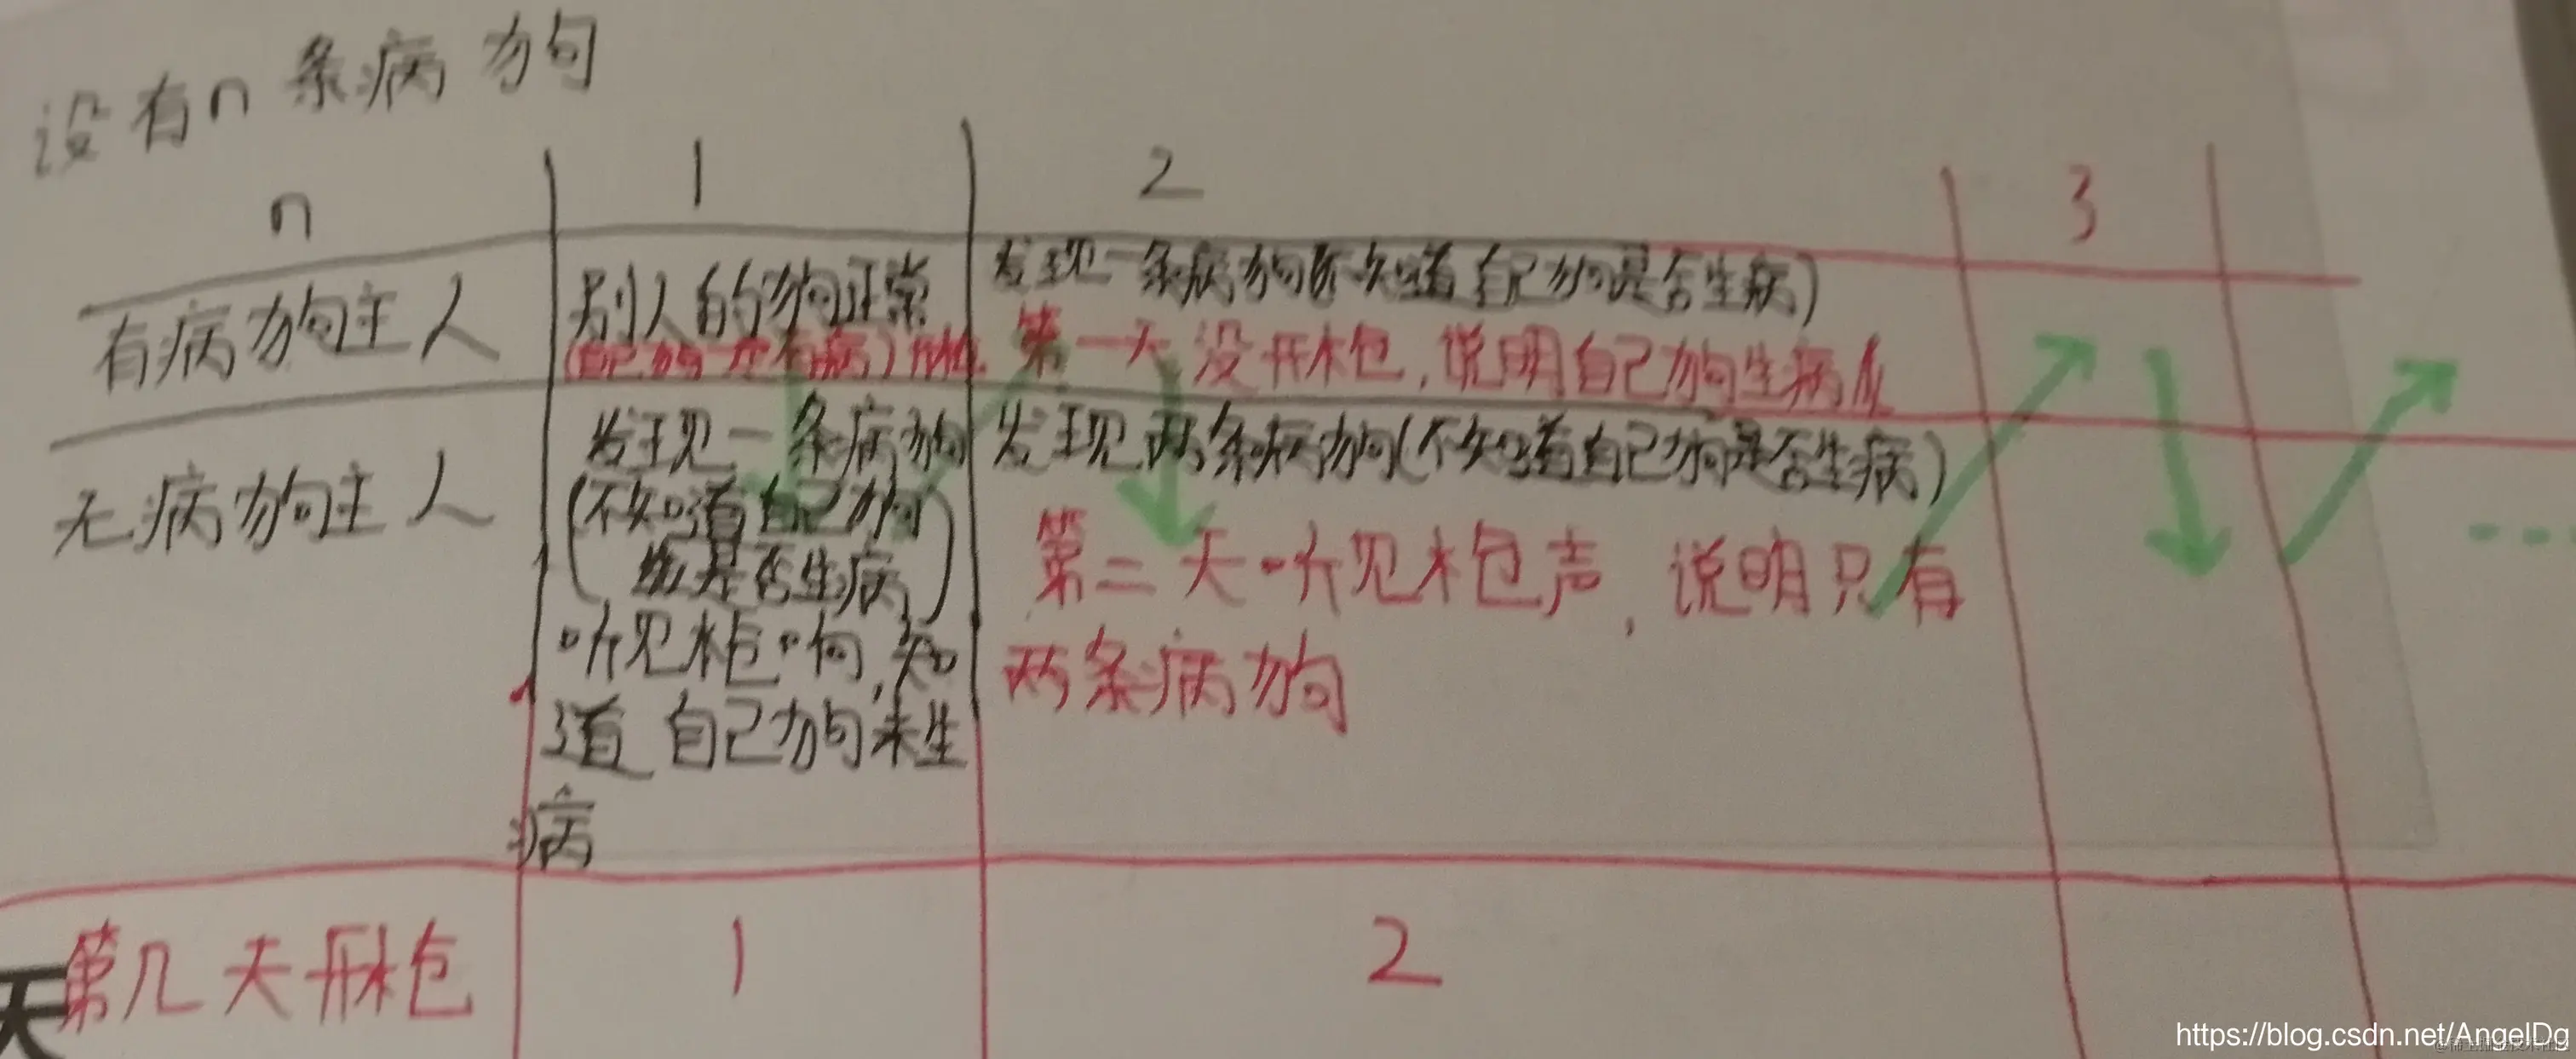 设有n条病狗
n 1 2 3
有病狗主人
别人的狗正常
(自己狗一定有病)开枪
发现一条病狗(不知道自己狗是否生病)
第一天没开枪,说明自己狗生病
无病狗主人
发现一条病狗
(不知道自己狗
是否生病)
听见枪响,知
道自己狗未生
病
发现两条病狗(不知道自己狗是否生病)
第二天听见枪声,说明只有
两条病狗
第几天开枪 1 2
天
https://blog.csdn.net/AngelDg